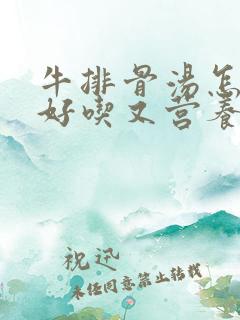 牛排骨汤怎
好喫又营养
祝迅
未经同意禁止转载